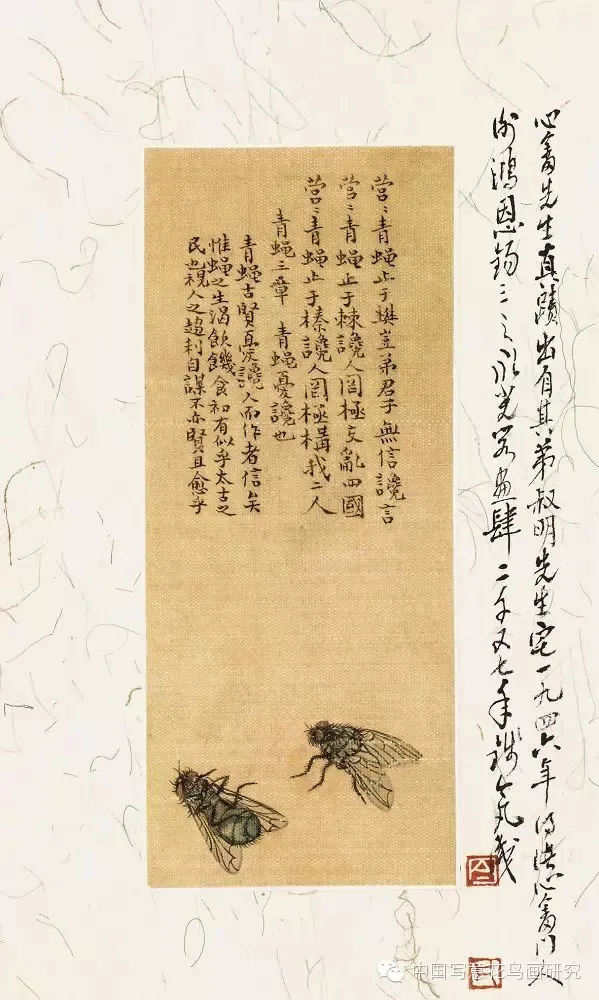 心畬先生真蹟出自其弟叔明先生宅一九四六年心畬門人
鴻恩錫三之畫肆 二千又七年
營〻青蝇止于樊豈弟君子無信讒言
營〻青蝇止于棘讒人罔極交亂四國
營〻青蝇止于榛讒人罔極構我二人
青蝇三章 青蝇憂讒也
青蝇古賢憂讒人而作者信矣
惟蝇之生渴飲饑食初有似乎太古之
民也視人之趨利自謀不亦賢且愈乎
中国写意花鸟画研究